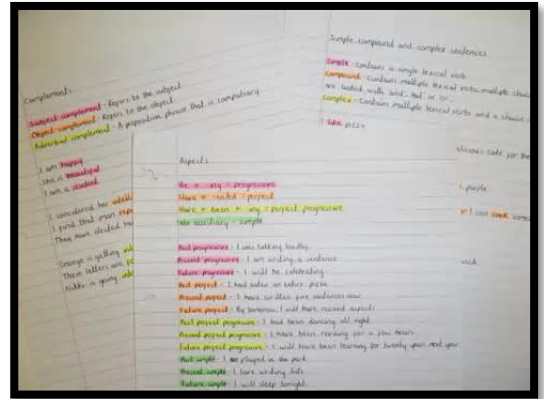 Complements
Subject complement - Refers to the subject
Object complement - Refers to the object
Adverbial complement - A preposition phrase that is compulsory
I am happy
She is beautiful
I am a student
I considered her
I find that man
They have elected her
George is getting
These letters are
Nikki is going
Simple, compound and complex sentences
Simple - Contains a single lexical verb
Compound - Contains multiple lexical verbs, multiple
are linked with 'and', 'but' or 'or'
Complex - Contains multiple lexical verbs and a
I pizza
purple
I can
Aspects
Be + -ing = progressive
Have + -en/ed = perfect
Have + been + -ing = perfect progressive
No auxiliary = simple
Past progressive - I was talking loudly
Present progressive - I am writing a sentence
Future progressive - I will be celebrating
Past perfect - I had eaten an entire pizza
Present perfect - I have written five sentences now
Future perfect - By tomorrow, I will have revised aspects
Past perfect progressive - I had been dancing all night
Present perfect progressive - I have been revising for a few hours
Future perfect progressive - I will have been learning for twenty years next year
Past simple - I played in the park
Present simple - I hate writing lists
Future simple - I will sleep tonight